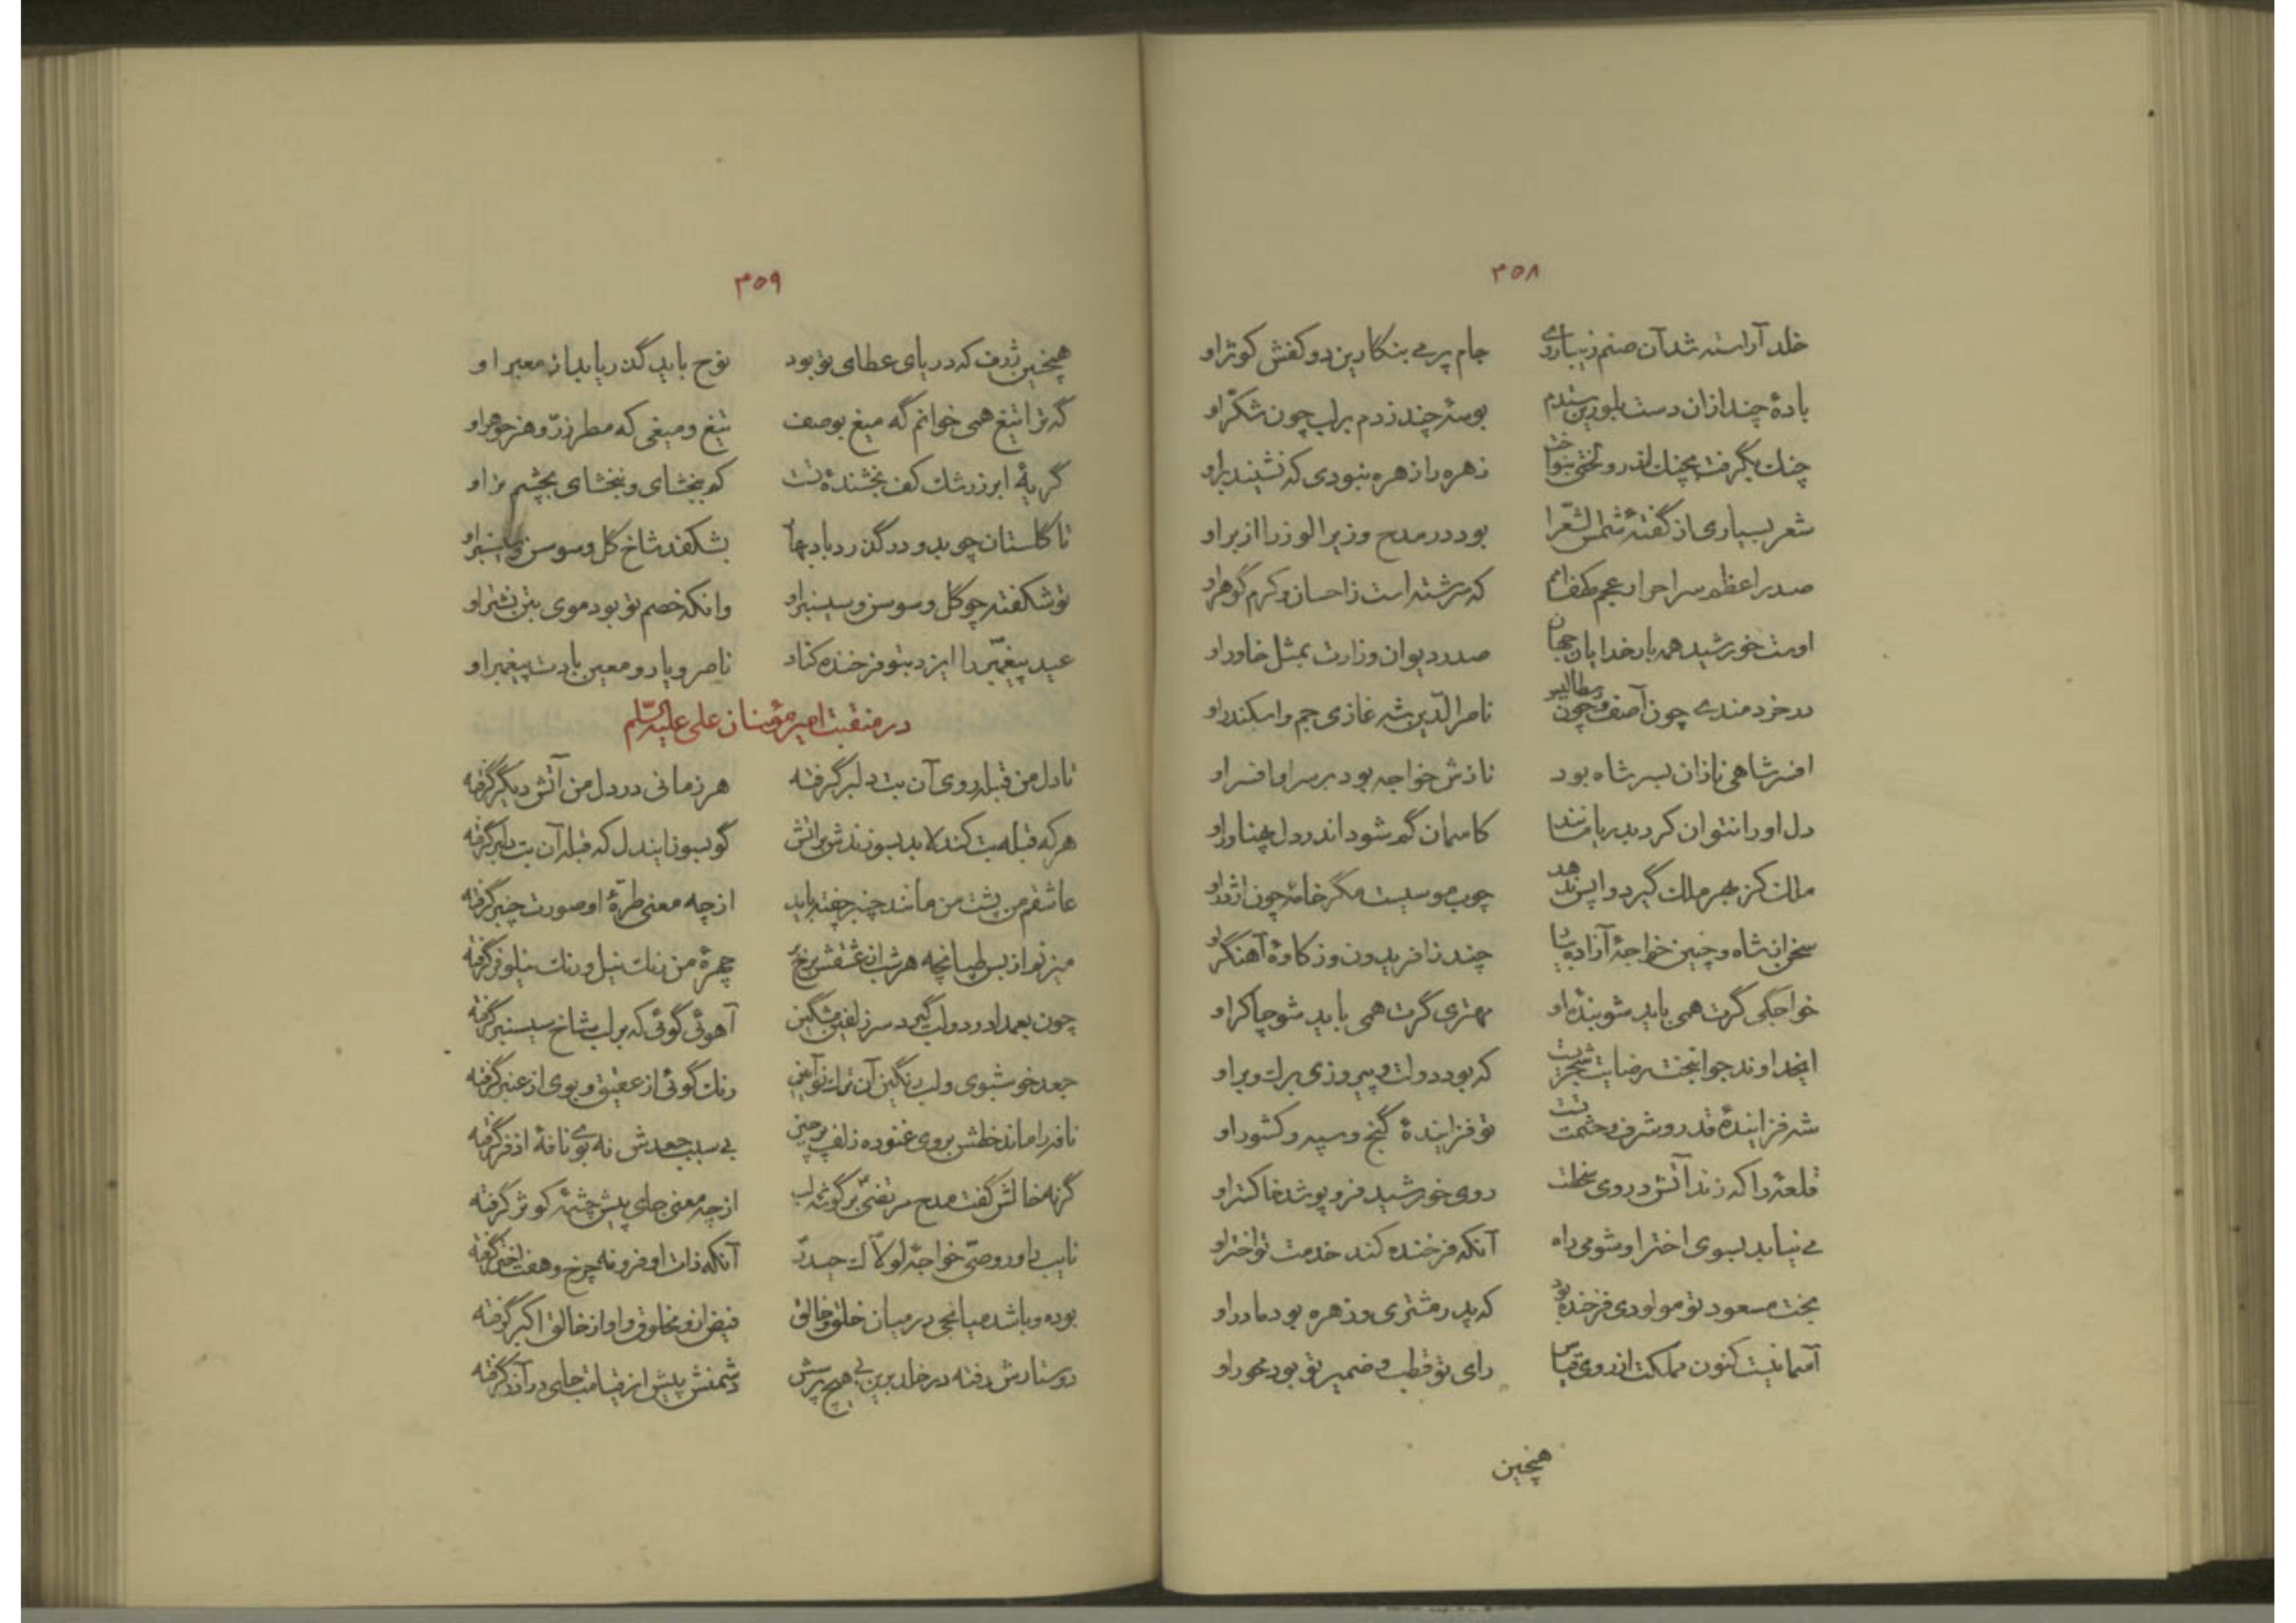 ۳۵۸
خلد آراسته شد آن صنم زیبا روی جام پر می بنگارین دو کفش کوثر او
بادهٔ چند ازان دست بلورین ستدم بوسهٔ چند زدم بر لب چون شکّر او
چنك بگرفت بچنك اندر و لختی بنواخت زهره را زهره نبودی که نشیند بر او
شعر بسیاری از گفتهٔ شمس الشّعرا بود در مدح وزیر الوزرا از بر او
صدر اعظم سر احرار عجم که سرشته است ز احسان و کرم گوهر او
اوست خورشید همه بار خدایان جهان صدر دیوان وزارت بمثل خاور او
در خردمندی چون آصف و چون رسطالیس ناصر الدّین شه غازی جم و اسکندر او
افسر شاهی نازان بسر شاه بود نازش خواجه بود بر سر او افسر او
دل او را نتوان کرد بدریا مانند کاسمان گم شود اندر دل پهناور او
ملك کز بهر ملك گیرد و اپس ندهد چوب موسیست مگر خامهٔ چون اژدر او
سخن از شاه و چنین خواجهٔ آزاده چند ز افریدون وز کاوهٔ آهنگر او
خواجگی گرت همی باید شو بندهٔ او مهتری گرت همی باید شو چاکر او
ایخداوند جوانبخت رضایت شجریست که بود دولت و پیروزی برك و بر او
شه فزایندهٔ قدر و شرف و حشمت تست تو فزایندهٔ گنج و سپه و کشور او
قلعهٔ را که زند آتش در وی سخطت روی خورشید فرو پوشد خاکستر او
می نیابد بسوی اختر او شومی راه آنکه فرخنده کند خدمت تو اختر او
بخت مسعود تو مولودی فرخنده بود که پدر مشتری و زهره بود مادر او
آسمانیست کنون مملکت از روی قیاس رای تو قطب و ضمیر تو بود محور او
همچنین
۳۵۹
همچنین ژرف که دریای عطای تو بود نوح باید گذر یابد از معبر او
گه ترا تیغ همی خوانم گه میغ بوصف تیغ و میغی که مطر زرّ و هنر جوهر او
گریهٔ ابر ز رشك کف بخشندهٔ تست کم ببخشای و ببخشای بچشم تر او
تا گلستان چو بدو در گذرد باد بهار بشکفد شاخ گل و سوسن و سیسنبر او
تو شکفته چو گل و سوسن و سیسنبر او وانکه خصم تو بود موی بتن نشتر او
عید پیغمبر را ایزد بتو فرخنده کناد ناصر و یار و معین بادت پیغمبر او
در منقبت امیر مؤمنان علی علیه السّلم
تا دل من قبله روی آن بت دلبر گرفته هر زمانی در دل من آتش دیگر گرفته
هر که قبله بت کند لابد بسوزندش بر آتش گو بسوز ایندل که قبله آن بت دلبر گرفته
عاشقم من پشت من مانند چنبر چفته باید از چه معنی طرّهٔ او صورت چنبر گرفته
میزنم از بس طپانچه هر شب از عشقش برخ بر چهرهٔ من رنك نیل و رنك نیلوفر گرفته
چون بعمدا در دو لب گیرد سر زلفین مشگین آهوئی گوئی که بر لب شاخ سیسنبر گرفته
جعد خوشبوی و لب رنگین آن ترك نو آئین رنك گوئی از عقیق و بوی از عنبر گرفته
نافه را ماند خطش بر وی غنوده زلف پرچین بی سبب جعدش نه بوی نافهٔ اذفر گرفته
گر نه خالش گفت مدح مرتضی بر گوشهٔ لب از چه معنی جای پیش چشمهٔ کوثر گرفته
نایب داور وصیّ خواجهٔ لولاك حیدر آنکه ذات او فر و نه چرخ و هفت اختر گرفته
بوده و باشد میانجی در میان خلق و خالق فیض از و مخلوق و او از خالق اکبر گرفته
دوستارش رفته در خلد برین بی هیچ پرسش دشمنش پیش از قیامت جای در آذر گرفته